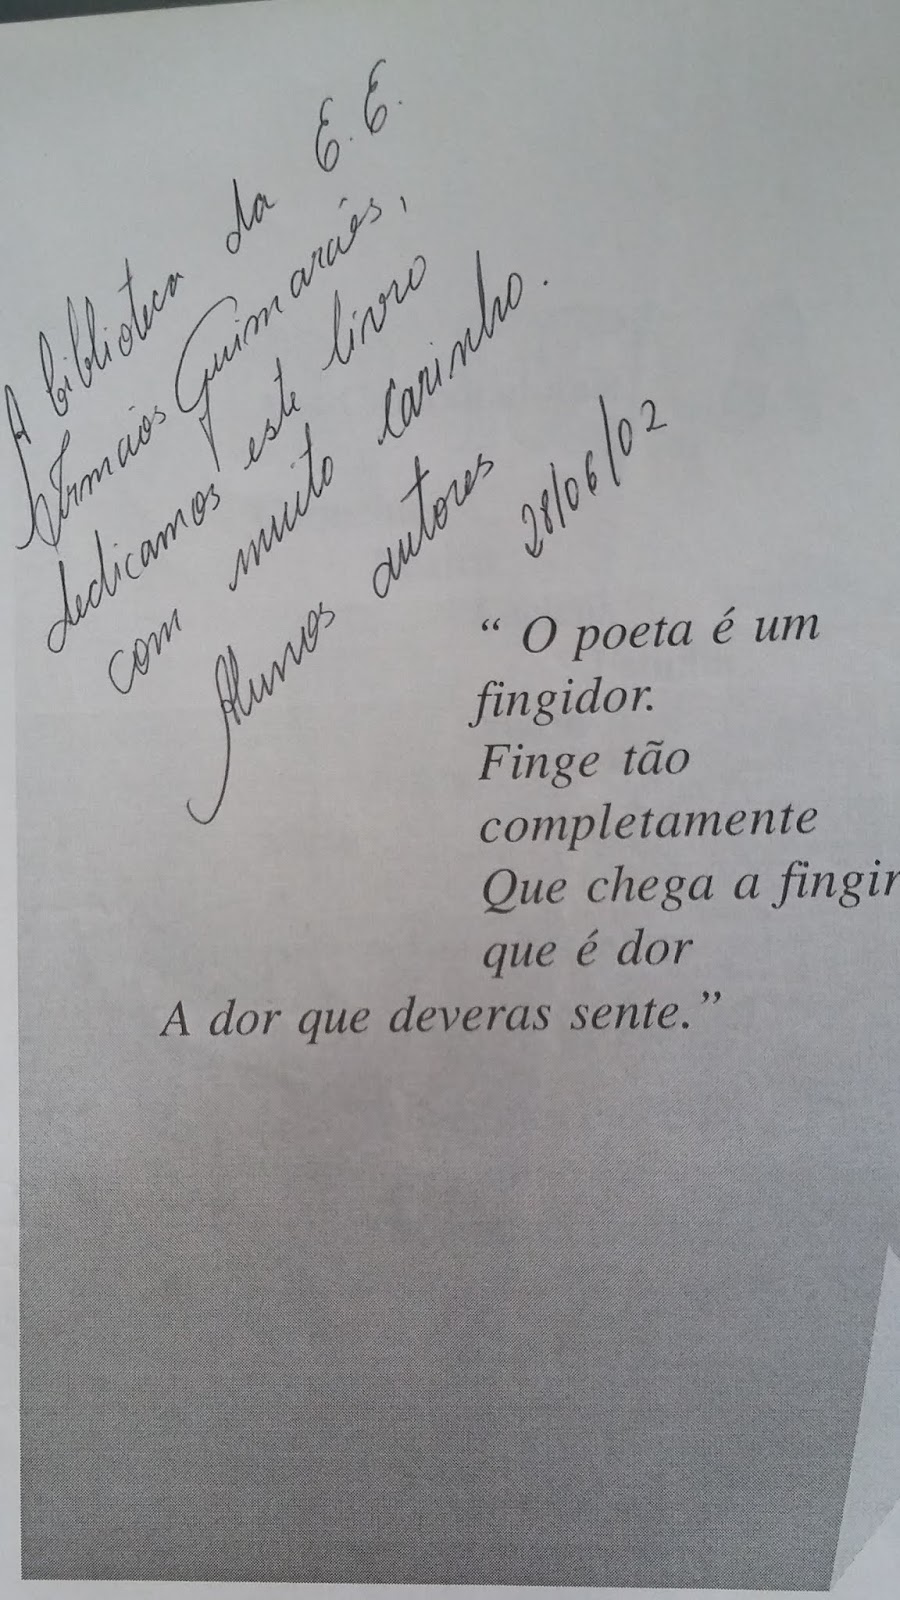 A biblioteca da E.E.
Irmãos Guimarães,
dedicamos este livro
com muito carinho.
Alunos autores
28/06/02
“ O poeta é um
fingidor.
Finge tão
completamente
Que chega a fingir
que é dor
A dor que deveras sente.”